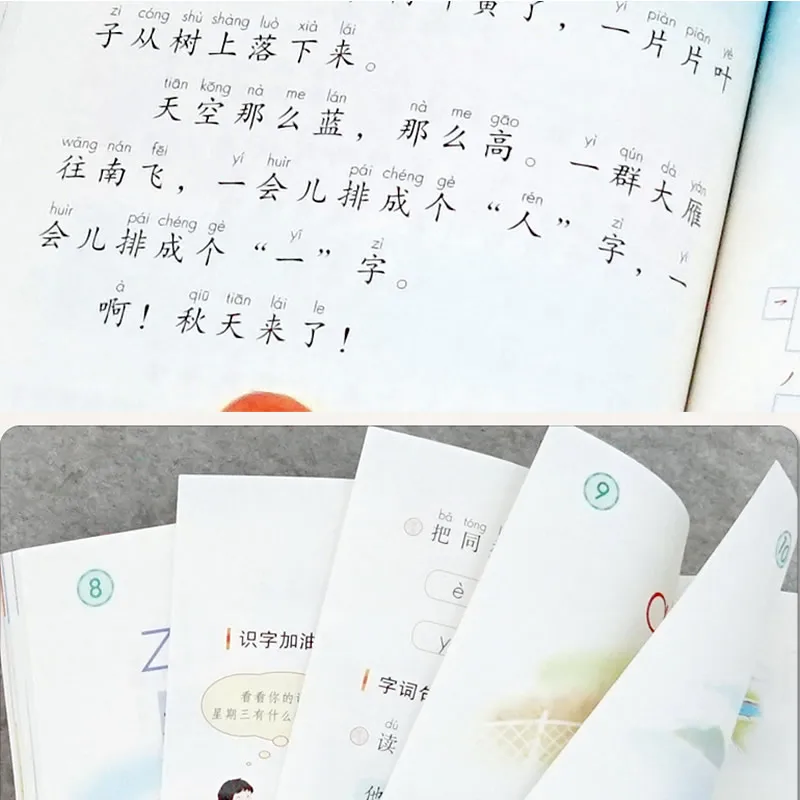 了，一片片叶
yí piàn piàn yè
zi cóng shù shàng luò xià lái
子从树上落下来。
tiān kōng nà me lán nà me gāo yì qún dà yàn
天空那么蓝，那么高。一群大雁
wǎng nán fēi yí huìr pái chéng gè rén zì yí
往南飞，一会儿排成个“人”字，一
huìr pái chéng gè yī zì
会儿排成个“一”字。
à qiū tiān lái le
啊！秋天来了！
8
识字加油
看看你的
星期三有什么
bǎ tóng
把同
è
y
字词句
dú
读
他
9
10